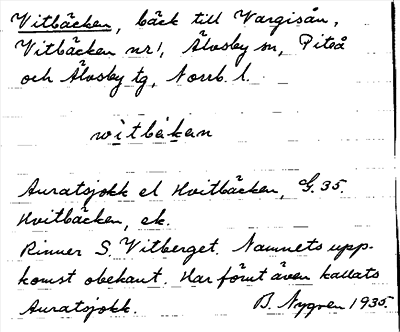 Vitbäcken, bäck till Vargisån,
Vitbäcken nr 1, Älvsby sn, Piteå
och Älvsby tg, Norrb. l.
witbäkan
Auratsjokk el Hvitbäcken, G. 35.
Hvitbäcken, ek.
Rinner S. Vitberget. Namnets upp-
komst obekant. Har förut även kallats
Auratsjokk. B. Nygren 1935